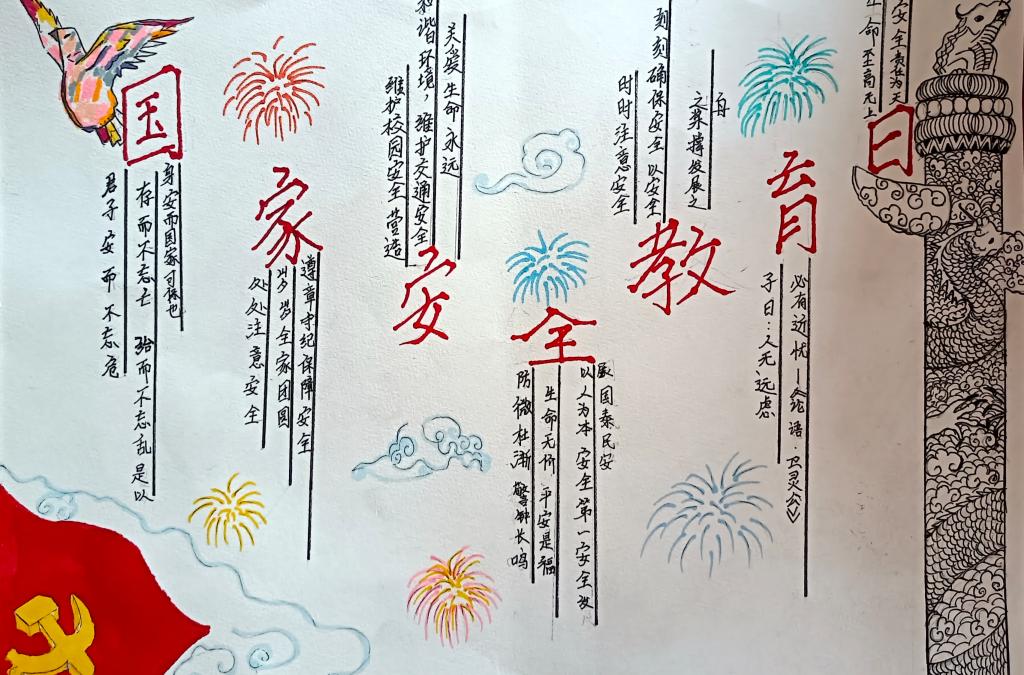 国
君子安而不忘危
存而不忘亡 治而不忘乱 是以
身安而国家可保也
家
处处注意安全
岁岁全家团圆
遵章守纪保障安全
安
维护校园安全 营造
和谐环境，维护交通安全
关爱生命永远
全
防微杜渐 警钟长鸣
生命无价 平安是福
以人为本 安全第一 安全发
展国泰民安
教
时时注意安全
刻刻确保安全 以安全
之策撑发展之
舟
育
子曰：人无远虑
必有近忧 —《论语·卫灵公》
日
生命至高无上
安全责任为天